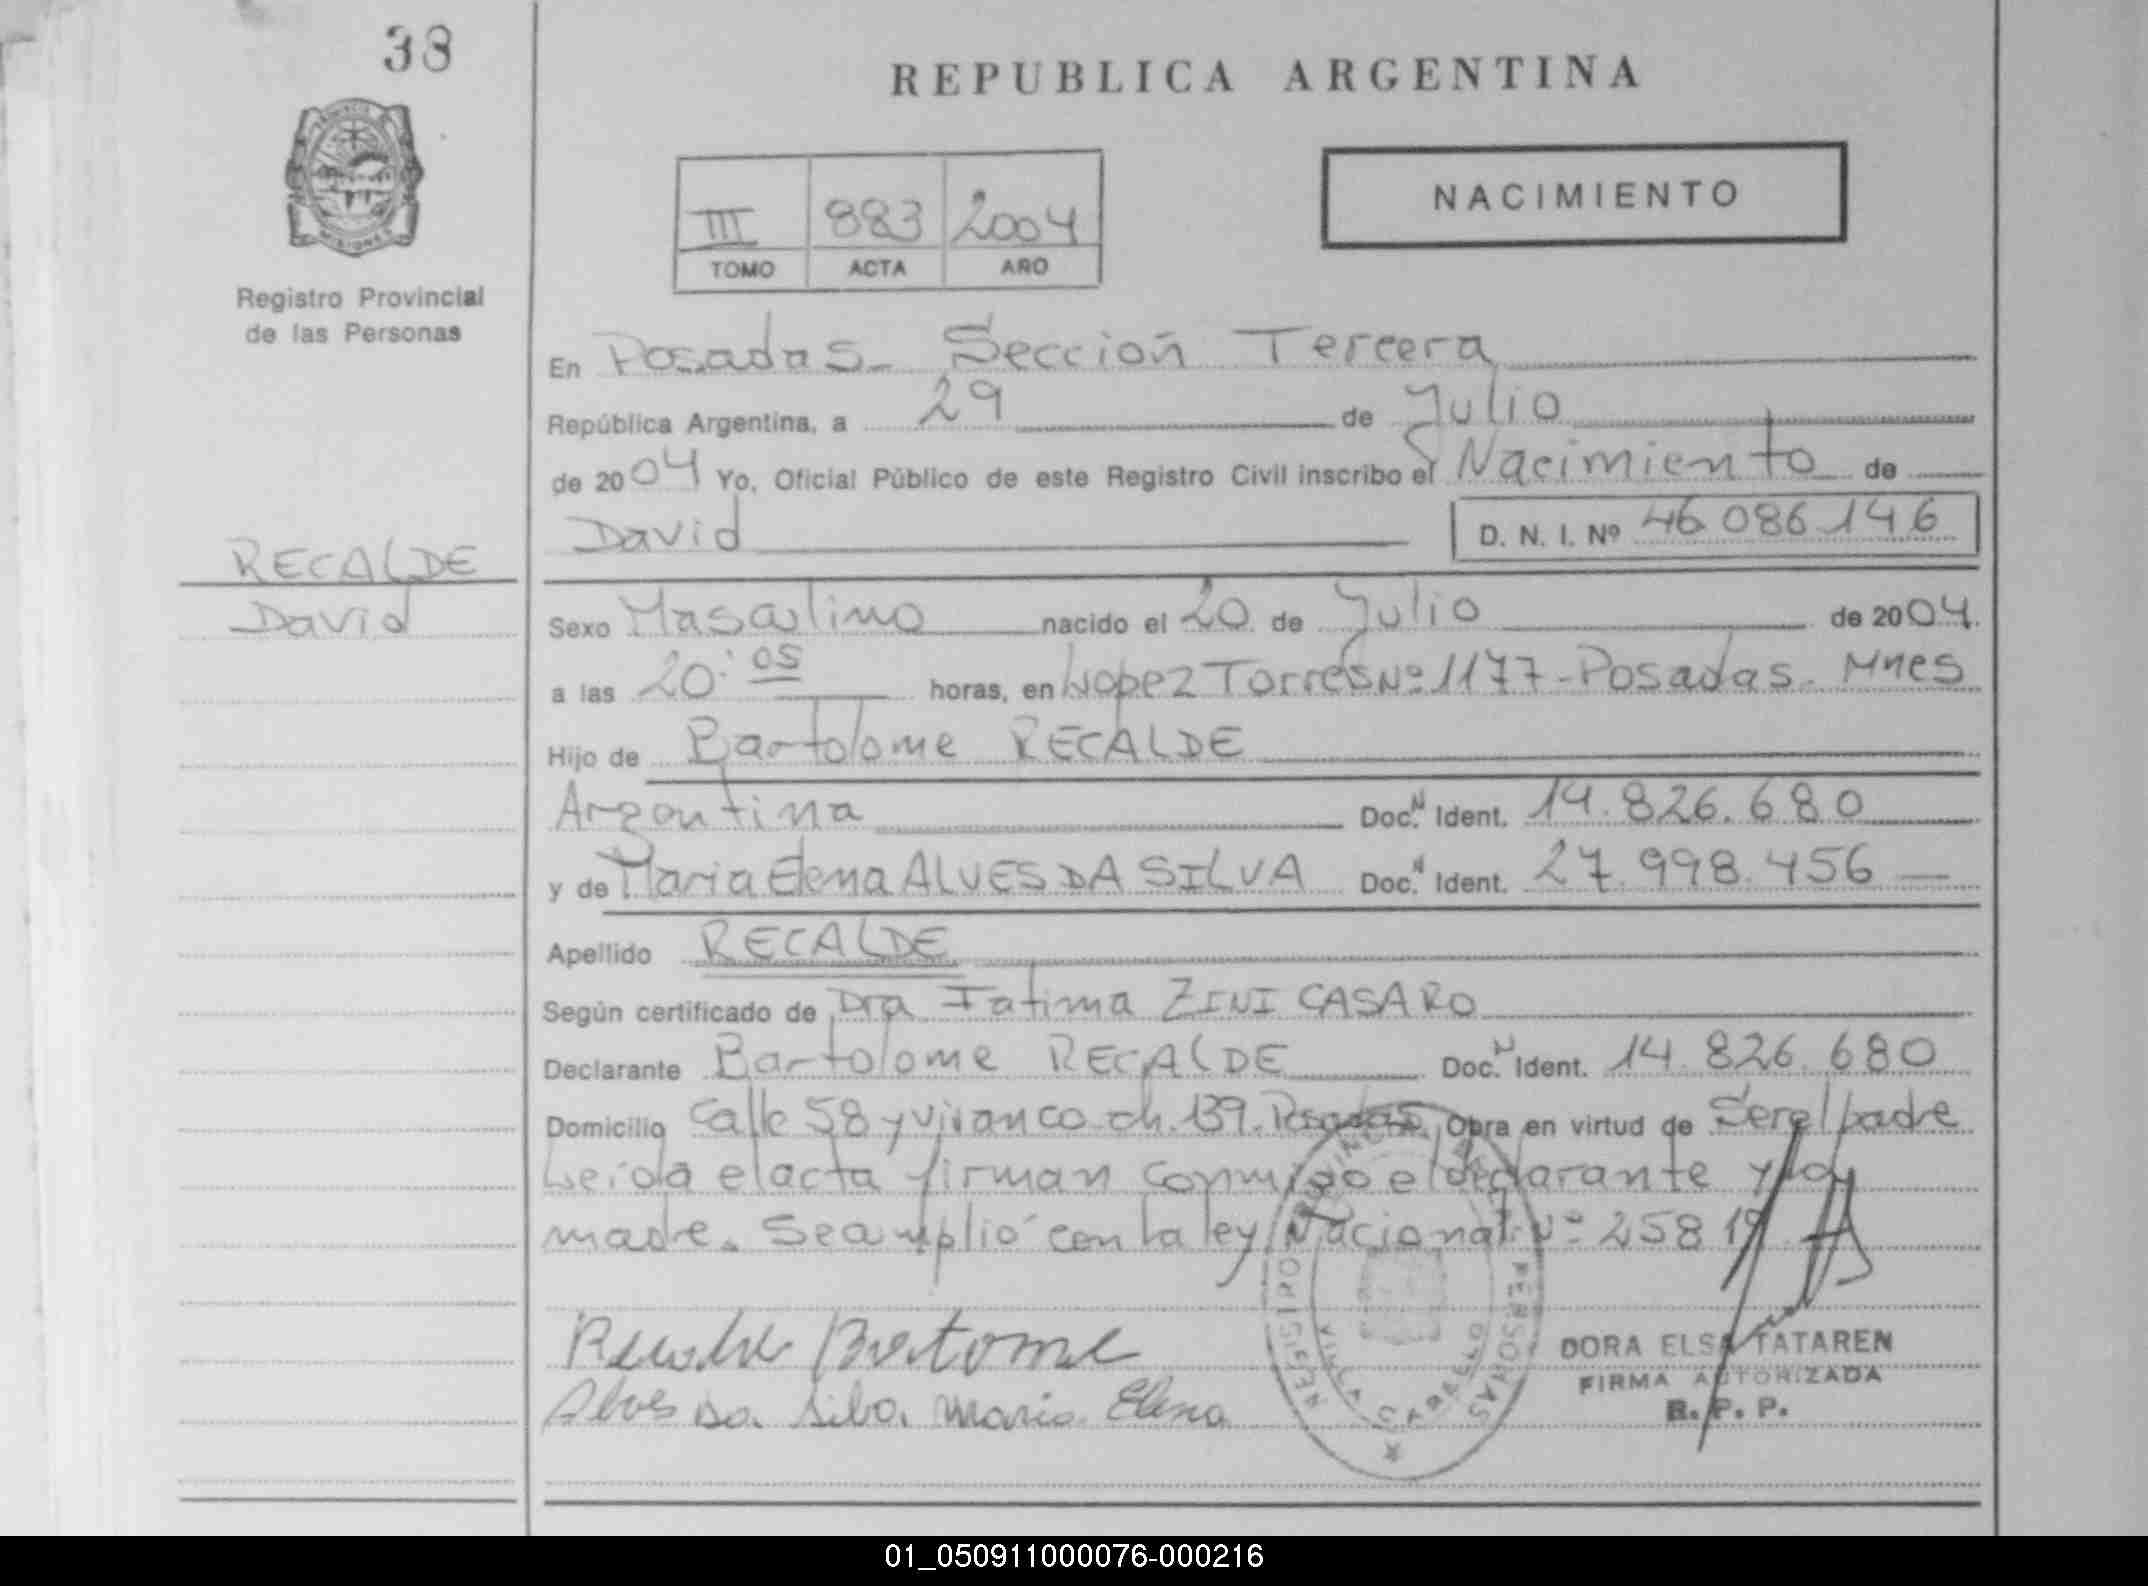 38
REPUBLICA ARGENTINA
NACIMIENTO
III 883 2004
TOMO ACTA AÑO
PROVINCIA
MISIONES
Registro Provincial
de las Personas
En Posadas - Sección Tercera
República Argentina, a 29 de Julio
de 2004 Yo, Oficial Público de este Registro Civil inscribo el Nacimiento de
David D. N. I. Nº 46.086.146
RECALDE
David
Sexo Masculino nacido el 20 de Julio de 2004.
a las 20:05 horas, en Lopez Torres Nº 1177 - Posadas - Mnes
Hijo de Bartolome RECALDE
Argentina Doc. N Ident. 14.826.680
y de Maria Elena ALVES DA SILVA Doc. N Ident. 27.998.456
Apellido RECALDE
Según certificado de Dra Fatima ZINI CASARO
Declarante Bartolome RECALDE Doc. N Ident. 14.826.680
Domicilio Calle 58 y Vivanco ch. 139. Posadas Obra en virtud de Ser el padre
Leída el acta firman conmigo el declarante y la
madre. Se amplió con la ley Nacional Nº 25819
Recalde Bartome
Alves Da Silva Maria Elena
DORA ELSA TATAREN
FIRMA AUTORIZADA
R. P. P.
01_050911000076-000216